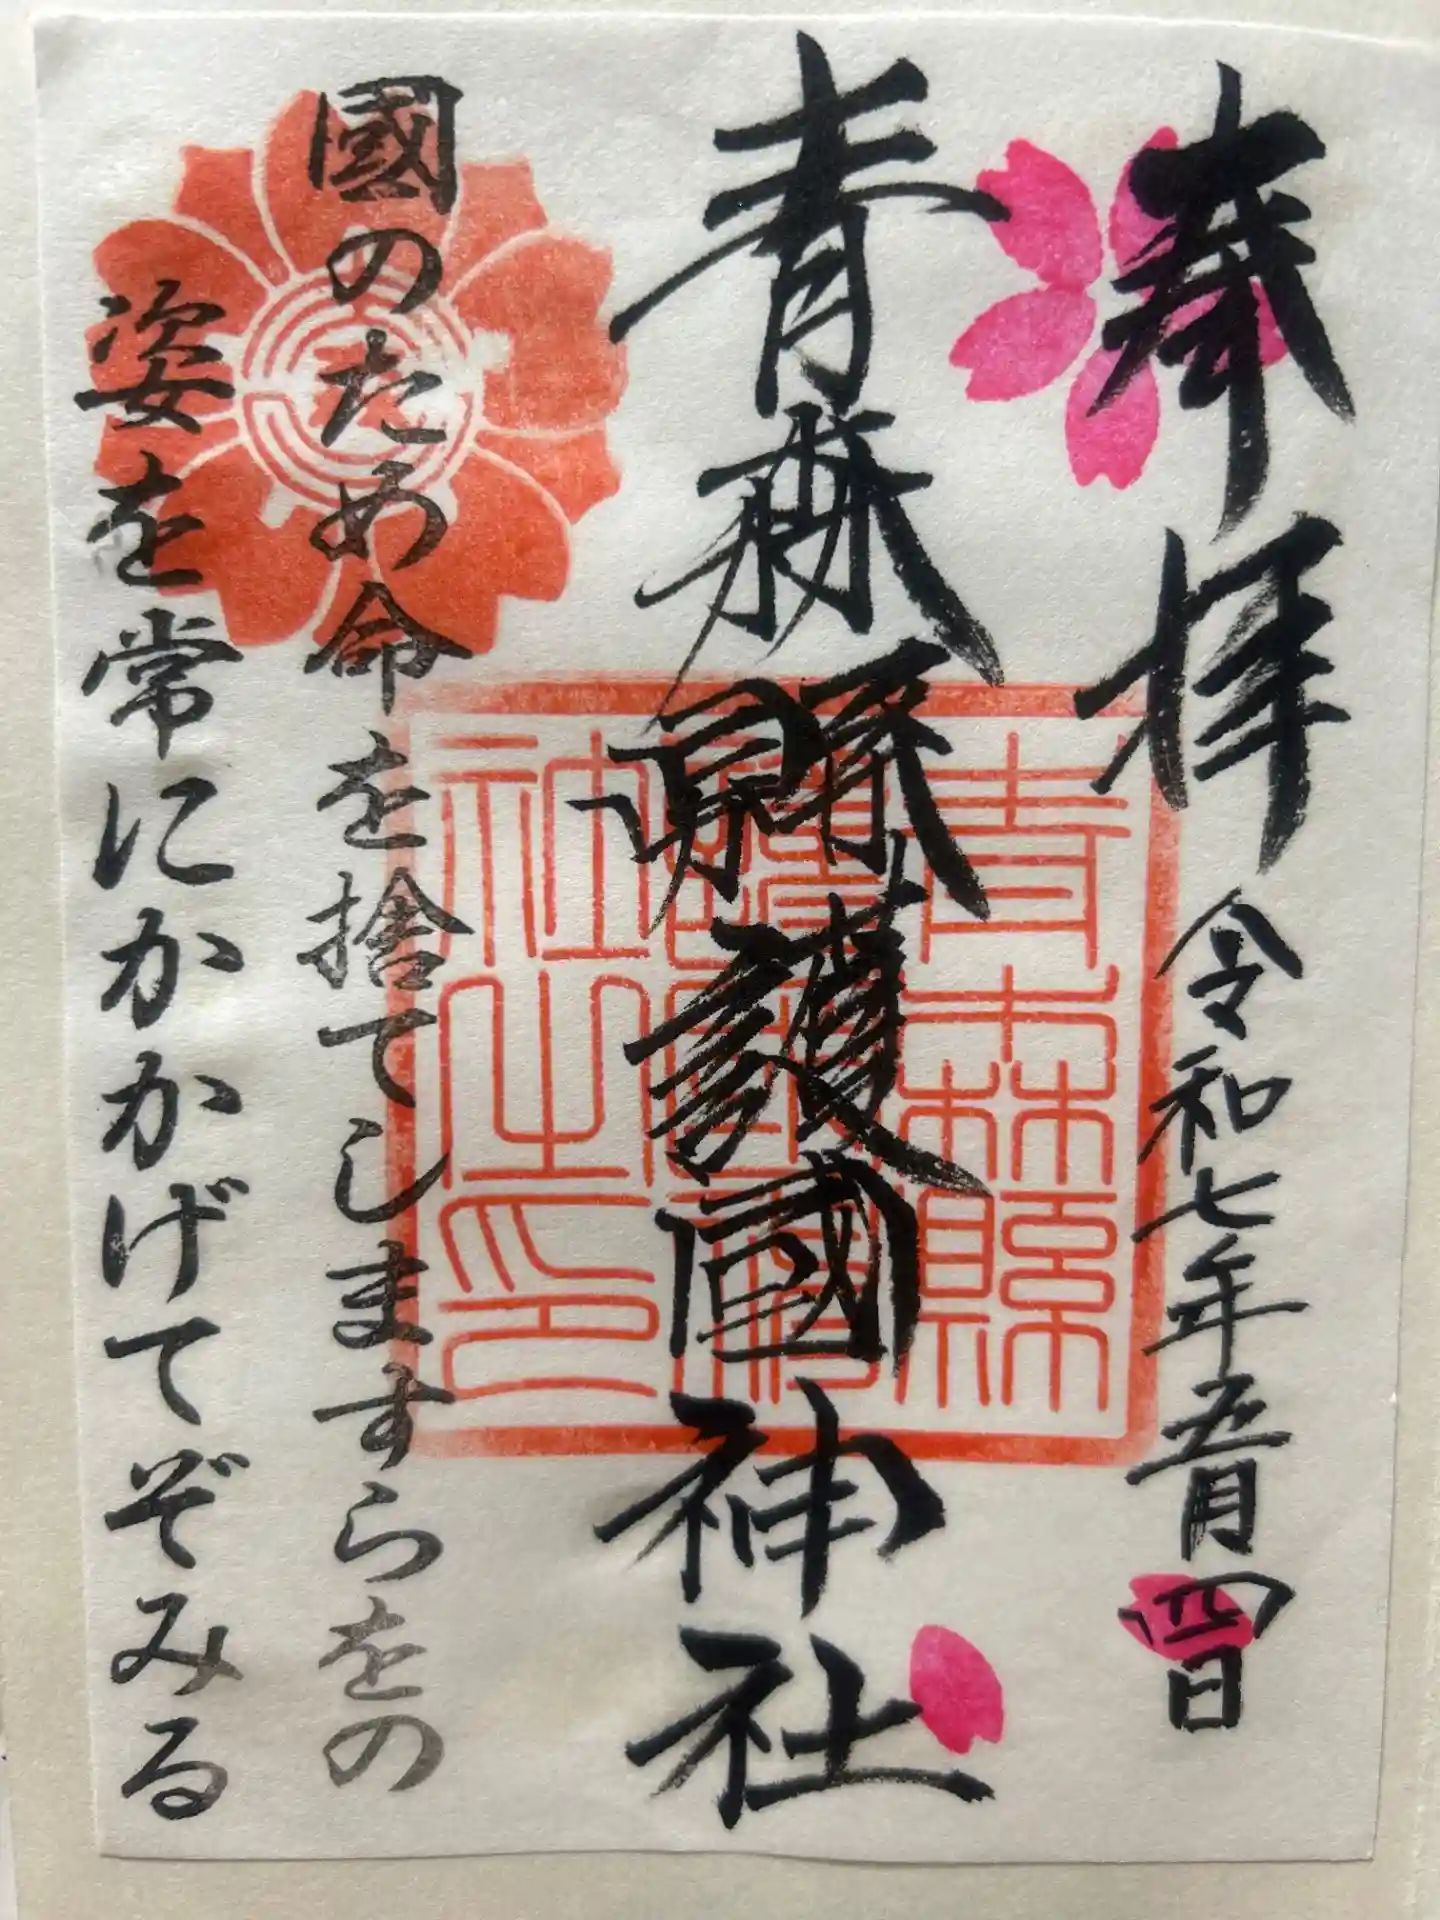 奉拝 令和七年五月四日
青森縣護國神社
國のため命を捨てしますらをの
姿を常にかかげてぞみる
青森縣
護國神
社之印